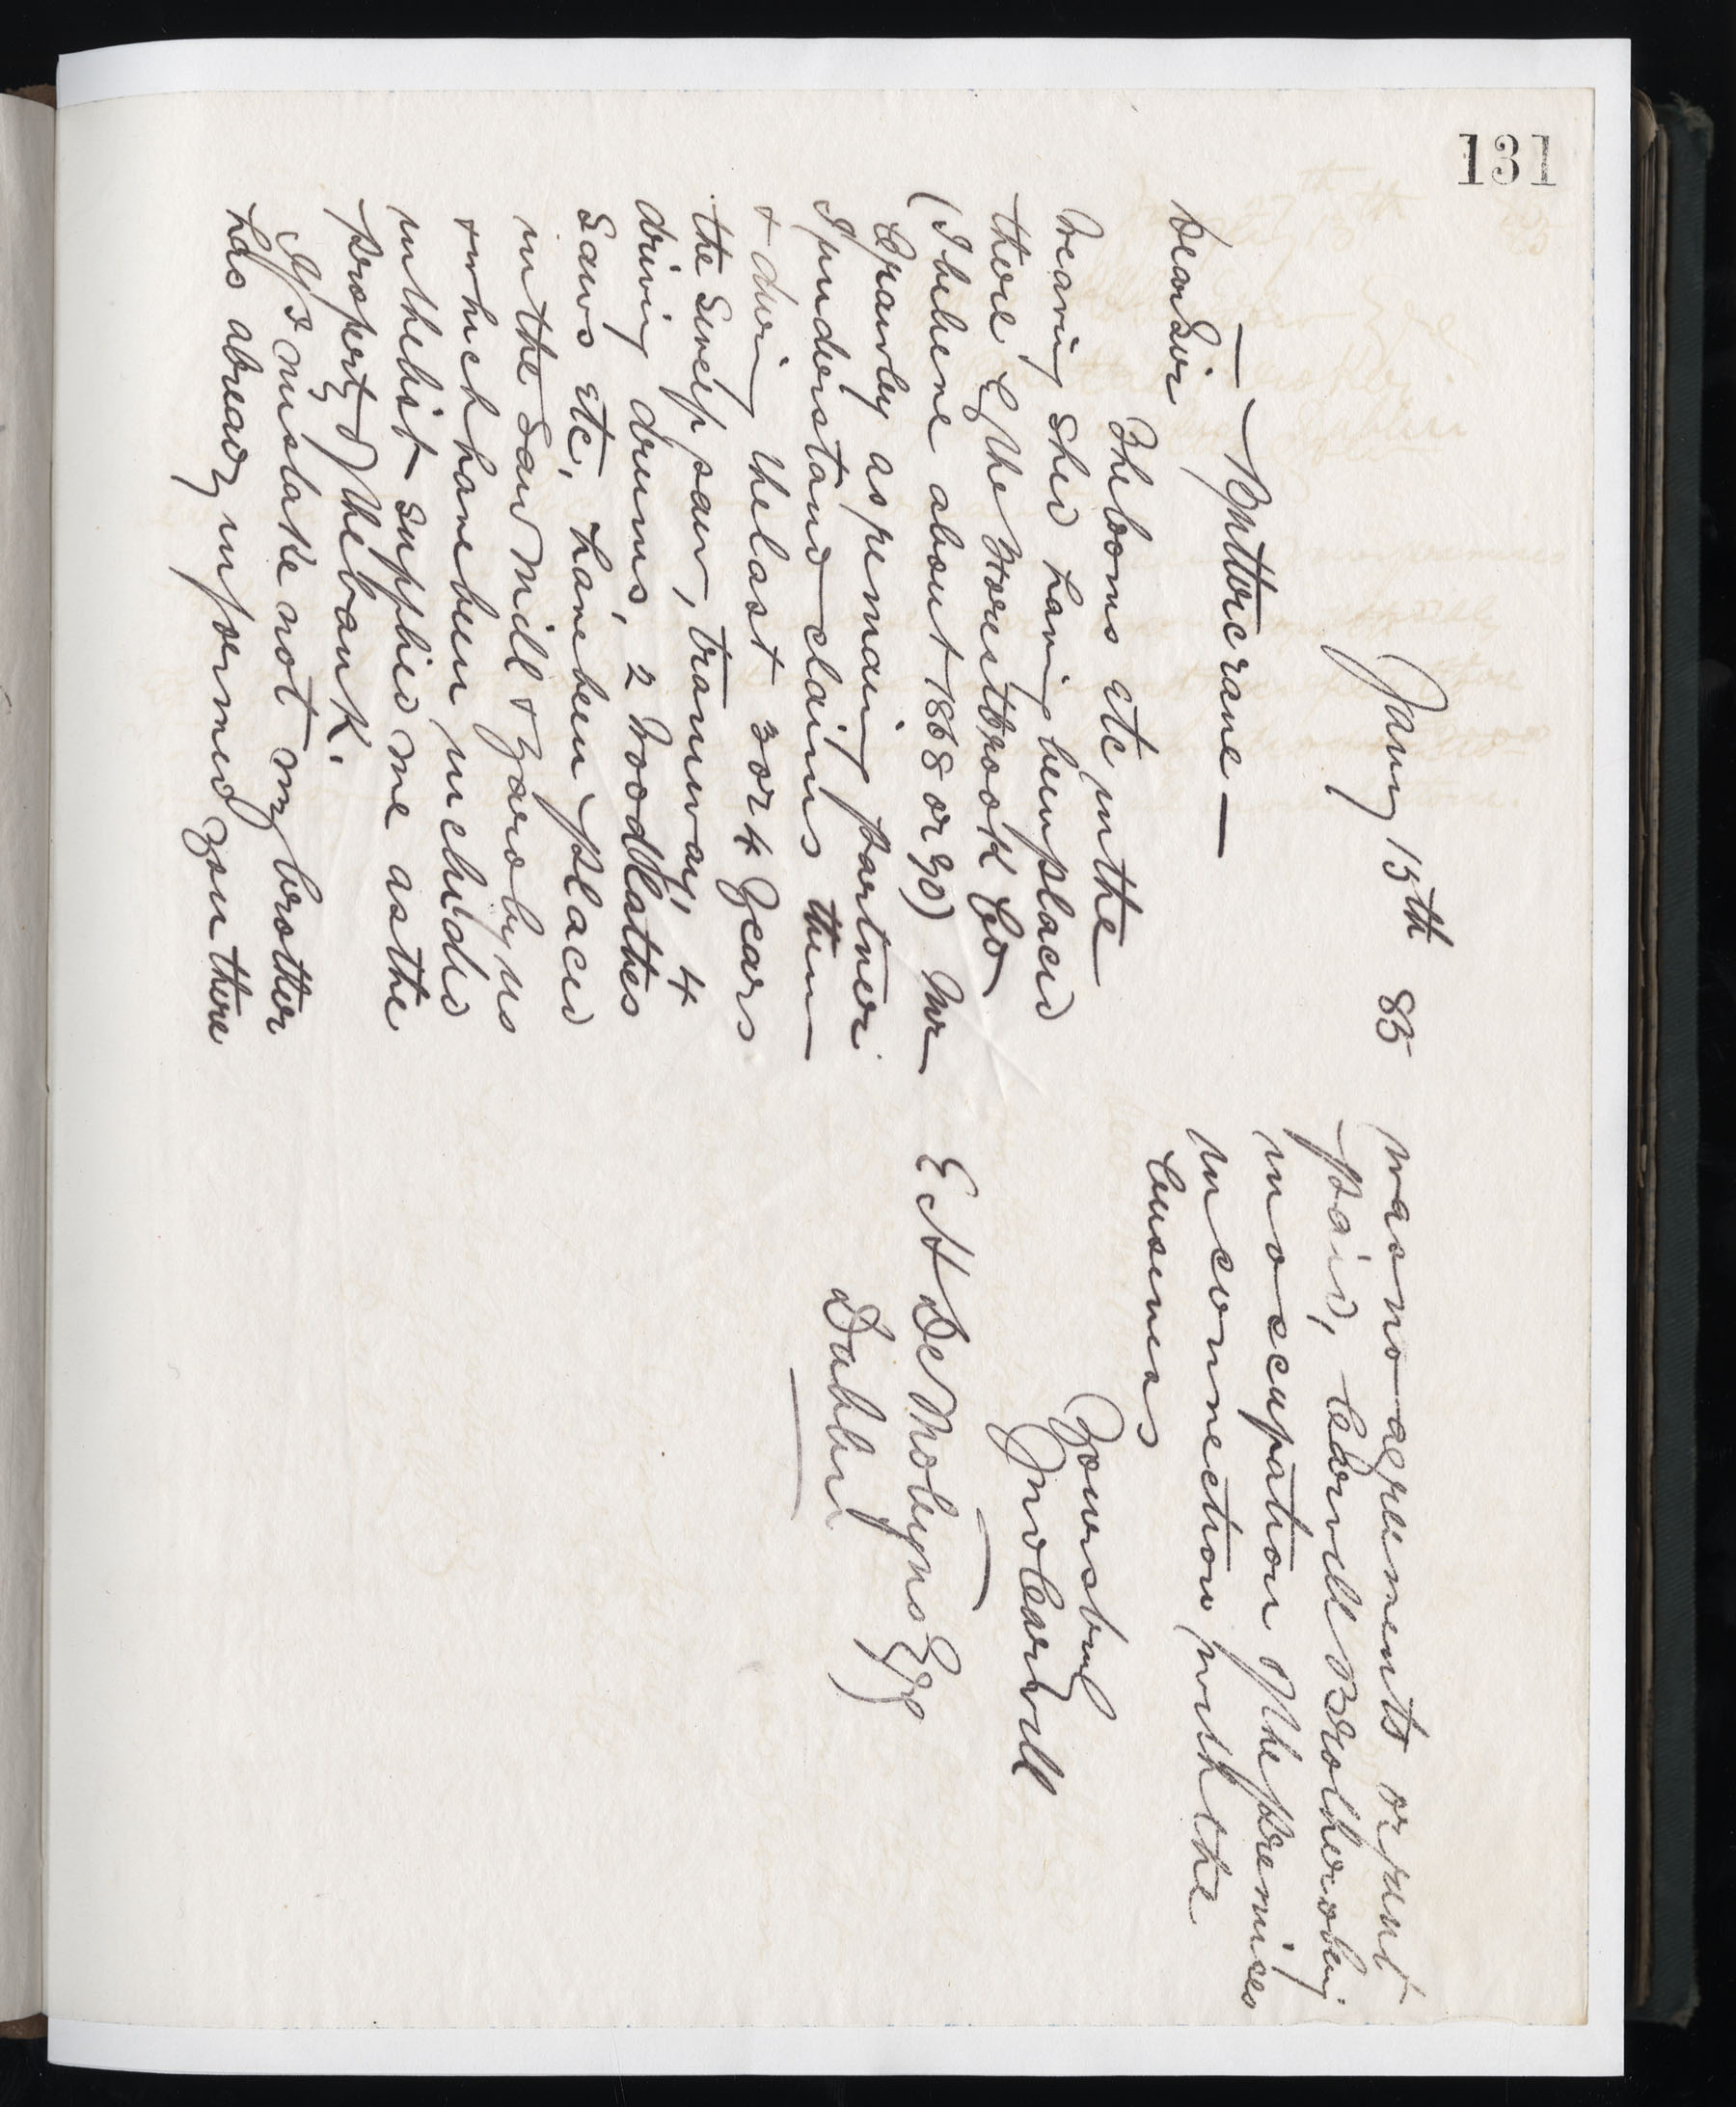 131
Jany 15th 85
— Byttercrane —
Dear Sir
The looms etc in the
Weaving Shed having been placed
there by the Westbrook Co
(I believe about 1868 or 90) Mr
Crawley as remaining partner
I understand claims them —
& during the last 3 or 4 Years
the Sweep saw, tramway, 4
driving drums, 2 Wood Lathes
Saws etc, have been placed
in the Saw Mill & Yard by us
& which have been included
in the list supplied me as the
property of the bank.
If I mistake not my brother
has already informed you there
was no agreements or rent
paid, Carvill Brothers being
in occupation of the premises
in connection with the
business
Yours truly
Jno Carvill
E H De Moleyns Esq
Dublin